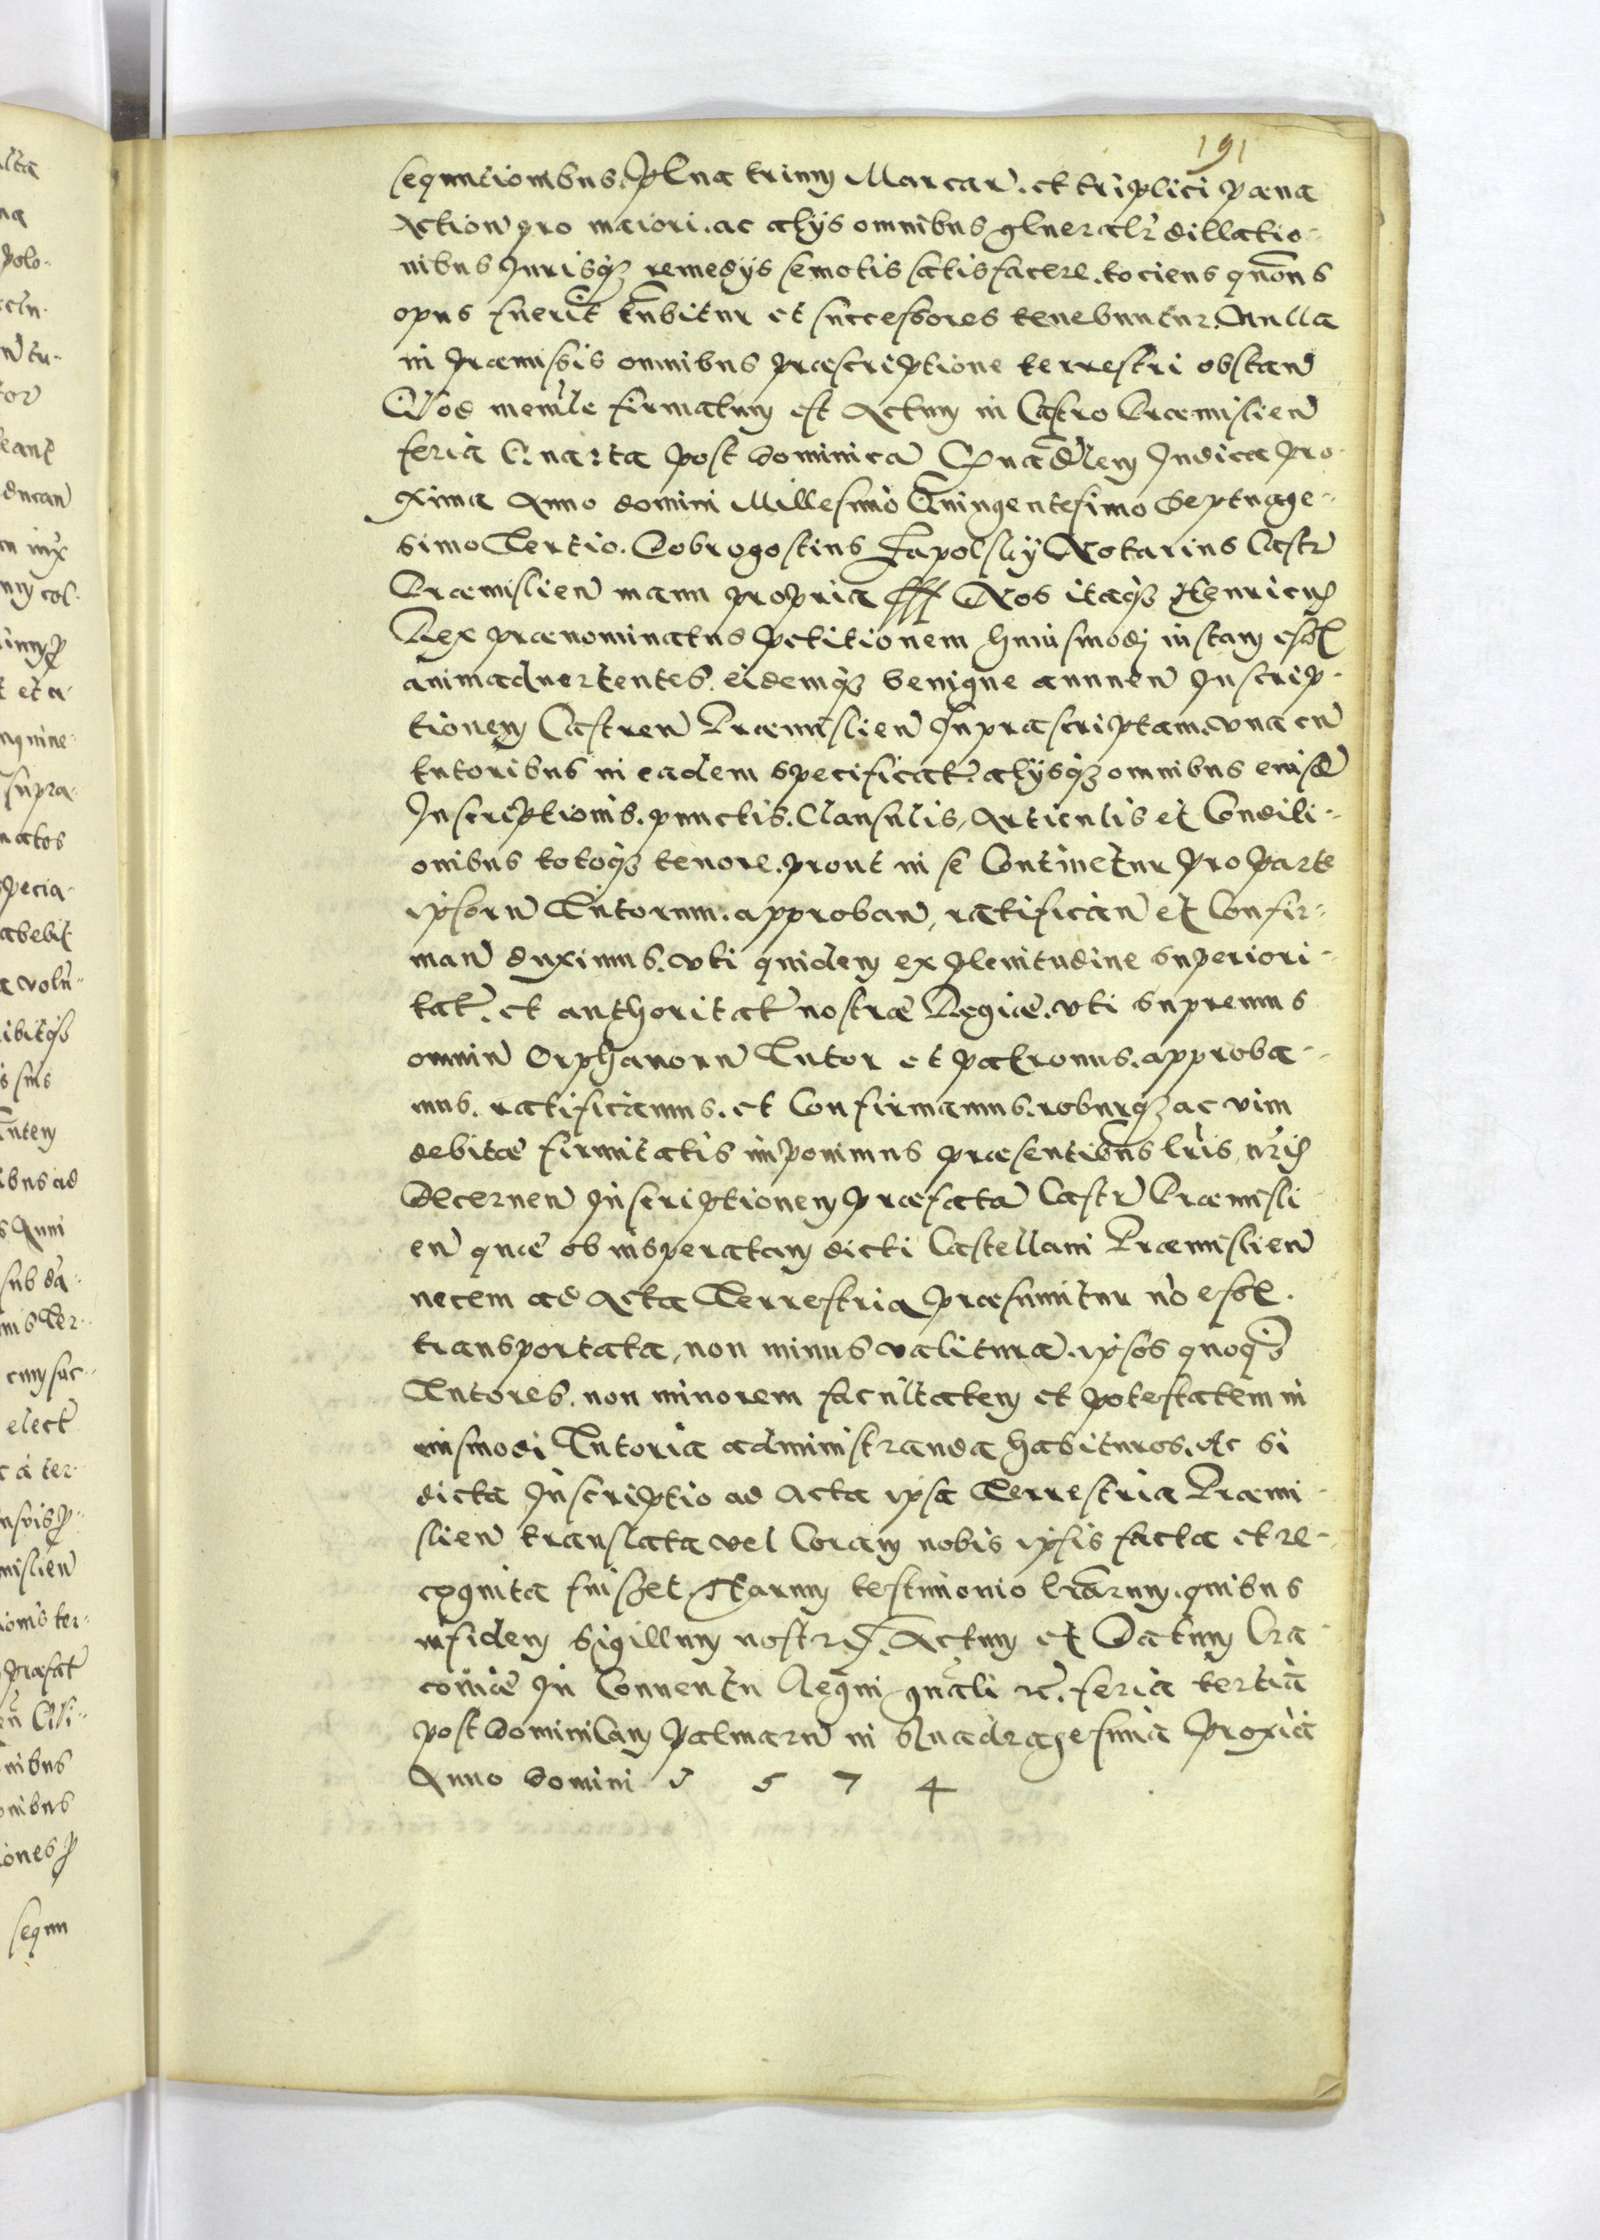 191
sequutionibus, plna trium Marcar. et triplici pæna
Action pro maiori. ac alijs omnibus gleneralr dillatio-
nibus Jurisqz remedijs semotis satisfacere. tociens quons
opus fuerit tnbitur et successores tenebuntur. Nulla
in præmissis omnibus præscriptione terrestri obstan
Qod memle firmatum est Actum in Castro Præmislien
feria Quarta post dominica Quadlem Judica pro-
xima Anno domini Millesimo Quingentesimo Septuage-
simo Tertio. Dobrogostius Notarius Castr
Præmislien manu propria Nos itaqz Henricus
Rex prænominatus petitionem huiusmodj iustam esse
animaduertentes. eidemqz benigne annuen Inscrip-
tionem Castren Præmislien Inpræscriptam. vna cu
tutoribus in eadem specificat. alijsqz omnibus eiusd
Inscriptionis. punctis. Clausulis, Articulis et Conditi-
onibus totoqz tenore. prout in se Continetur pro parte
ipsoru Tutorum. approban, ratifican et Confir-
man duximus. vti quidem ex plenitudine superiori-
tat. et authoritat nostræ Regiæ. vti supremus
omniu Orphanoru Tutor et patronus. approba-
mus. ratificamus. et Confirmamus. roburqz ac vim
debitæ firmitatis imponimus præsentibus lris nris
Decernen Inscriptionem præfata Castr Præmisli-
en quæ ob insperatam dicti Castellani Præmislien
necem ad Acta Terrestria præsumitur no esse.
transportata, non minus valitura. ipsos quoqz
Tutores. non minorem facultatem et potestatem in
eiusmodi Tutoria administranda habituros. Ac si
dicta Inscriptio ad Acta ipsa Terrestria Præmi-
slien translata vel Coram nobis ipsis facta et re-
cognita fuisset. Harum testimonio lrarum. quibus
infidem sigillum nostr Actum et Datum Cra-
coviæ In Conuentu Regni gnali rc. feria tertia
post Dominicam palmaru in Quadragesima proxia
Anno Domini 1 5 7 4